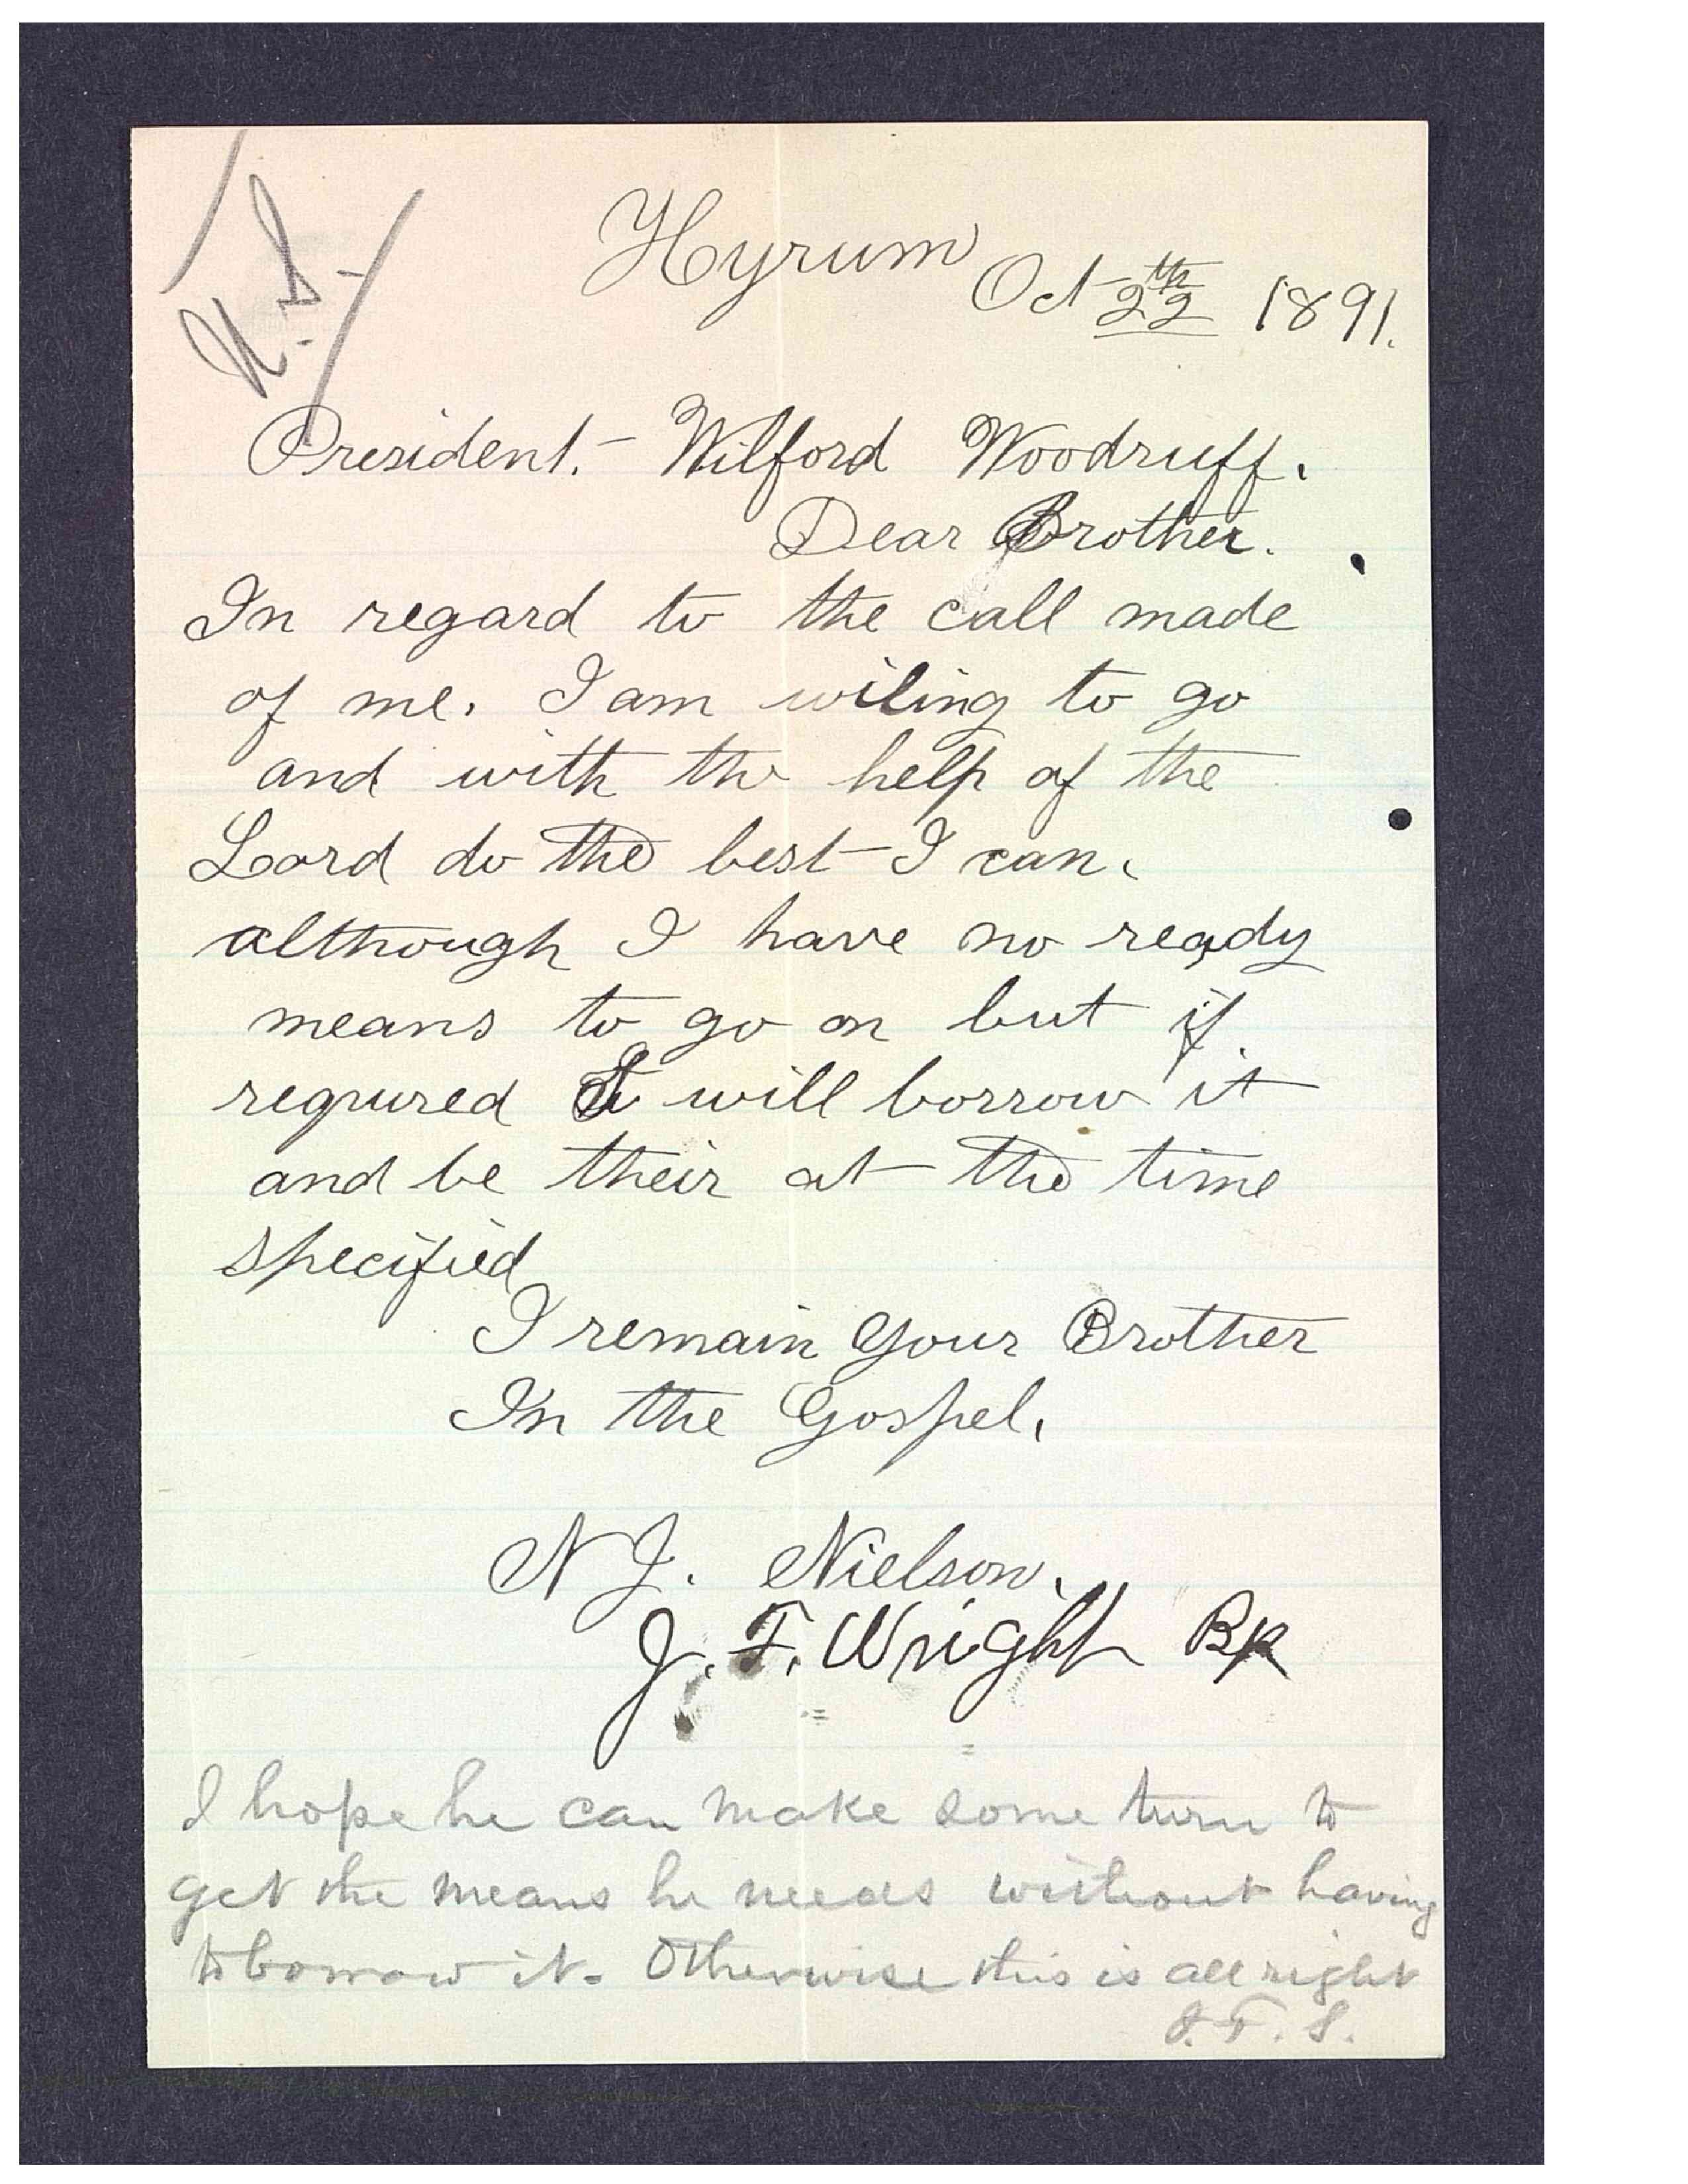 U.S.
Hyrum Oct 22th 1891.
President.- Wilford Woodruff.
Dear Brother.
In regard to the call made
of me. I am wiling to go
and with the help of the
Lord do the best I can.
although I have no ready
means to go on but if
requred I will borrow it
and be their at the time
specified
I remain Your Brother
In the Gospel.
N J. Nielson.
J. F. Wright Bp
I hope he can make some turn to
get the means he needs without having
to borrow it. Otherwise this is all right
J. F. S.